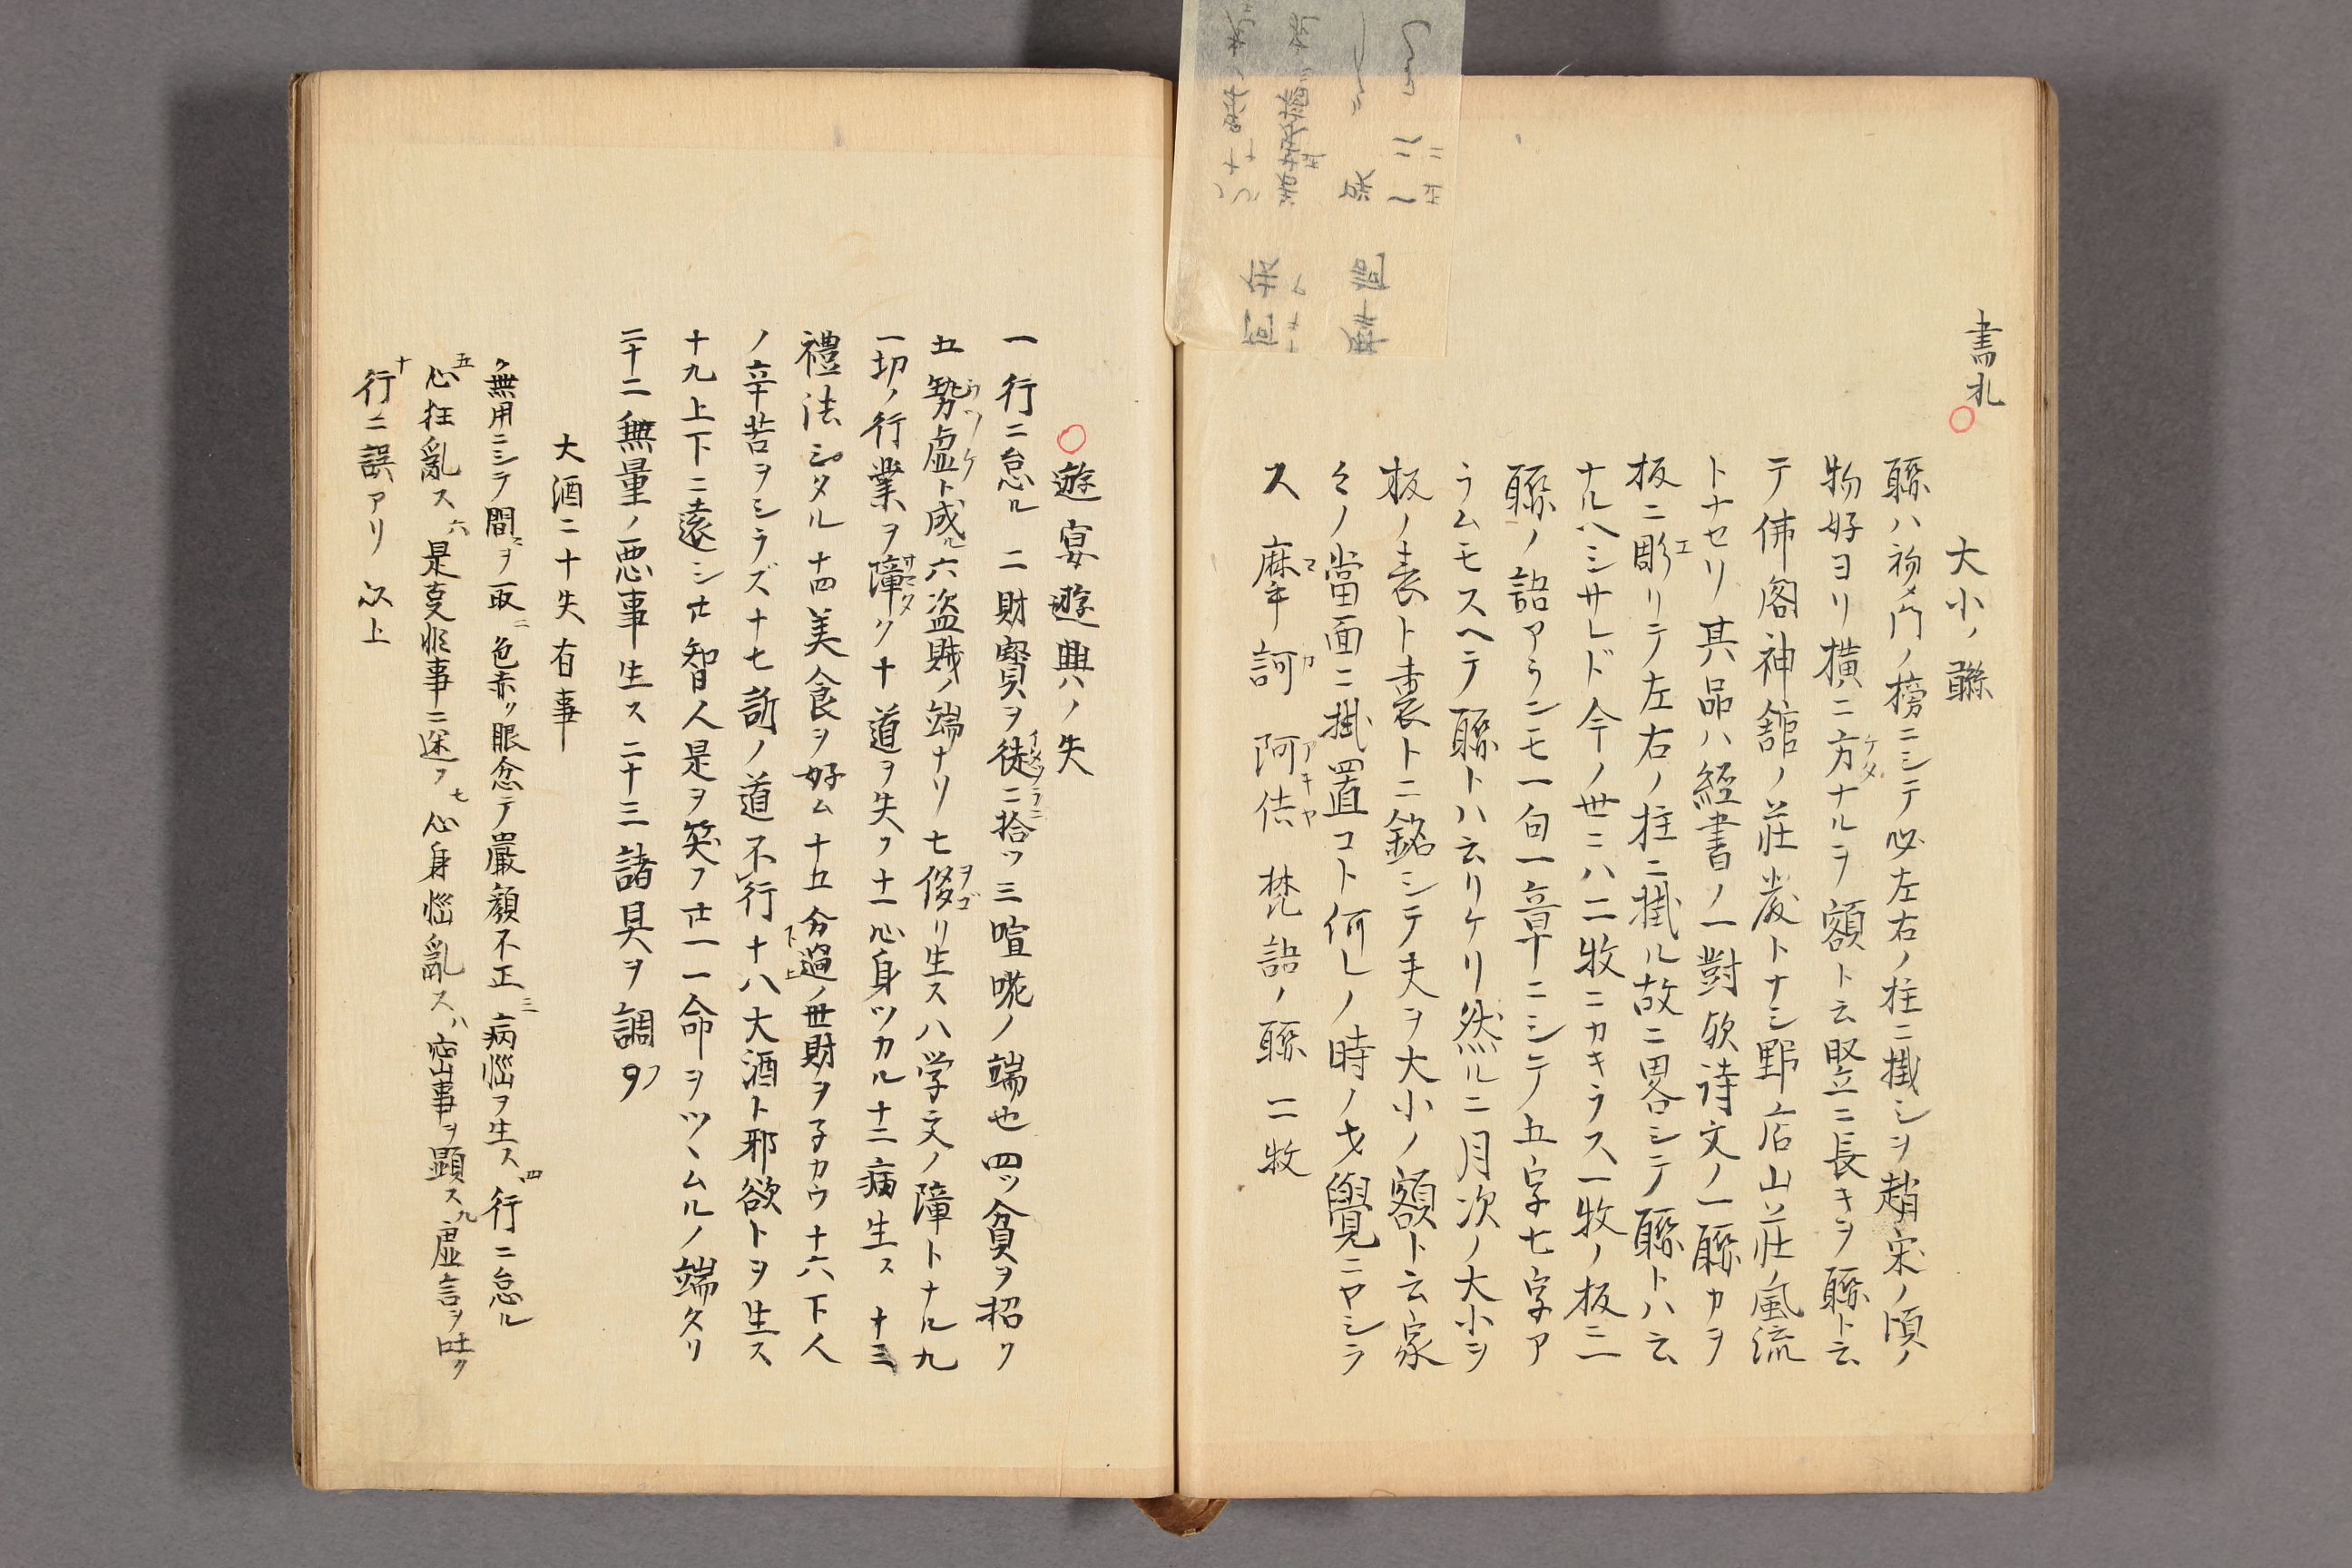 書札
大小ノ聯
聯ハ初メ門ノ榜ニシテ必左右ノ柱ニ掛シヲ趙宋ノ頃ノ
物好ヨリ横ニ方ケタナルヲ額ト云竪ニ長キヲ聯ト云
テ佛閣神舘ノ荘嚴トナシ野店山荘ノ風流
トナセリ其品ハ經書ノ一對欤詩文ノ一聯カヲ
板ニ彫エリテ左右ノ柱ニ掛ル故ニ畧シテ聯トハ云
ナルヘシサレド今ノ世ニハ二牧ニカキラス一牧ノ板ニ一
聯ノ語アランモ一句一章ニシテ五字七字ア
ラムモスヘテ聯トハ云リケリ然ルニ月次ノ大小ヲ
板ノ表ト裏トニ銘シテ夫ヲ大小ノ額ト云家
々ノ當面ニ掛置コト何レノ時ノ才覺ニヤシラ
ス 摩マ訶カ 阿ア佉キヤ 梵語ノ聯 二牧
遊宴遊興ノ失
一 行ニ怠ル 二財寳ヲ徒イタヅラニニ拾ツ三喧𠵅ノ端也四ツ貪ヲ招ク
五 勢虚ウツケト成ル六盗賊ノ端ナリ七侈ヲゴリ生ス八学文ノ障トナル九
一切ノ行業ヲ障サマタク十道ヲ失フ十一心身ツカル十二病生ス 十三
禮法ミタル十四美食ヲ好ム十五分過ノ世財ヲ子カウ十六下人
ノ辛苦ヲシラズ十七訴ノ道不行十八大酒ト邪欲トヲ生ス
十九上下ニ遠シ廿智人是ヲ笑フ廿一一命ヲツヽムルノ端タリ
二十二無量ノ悪事生ス二十三諸具ヲ調フ
大酒ニ十失有事
無用ニシテ間ヲ取 二色赤ッ眼忿テ嚴顔不正 三病惱ヲ生ス 四行ニ怠ル
五心狂亂ス 六是支非事ニ迷フ 七心身惱亂ス 八密事ヲ顕ス 九虚言ヲ吐ク
十行ニ誤アリ 以上